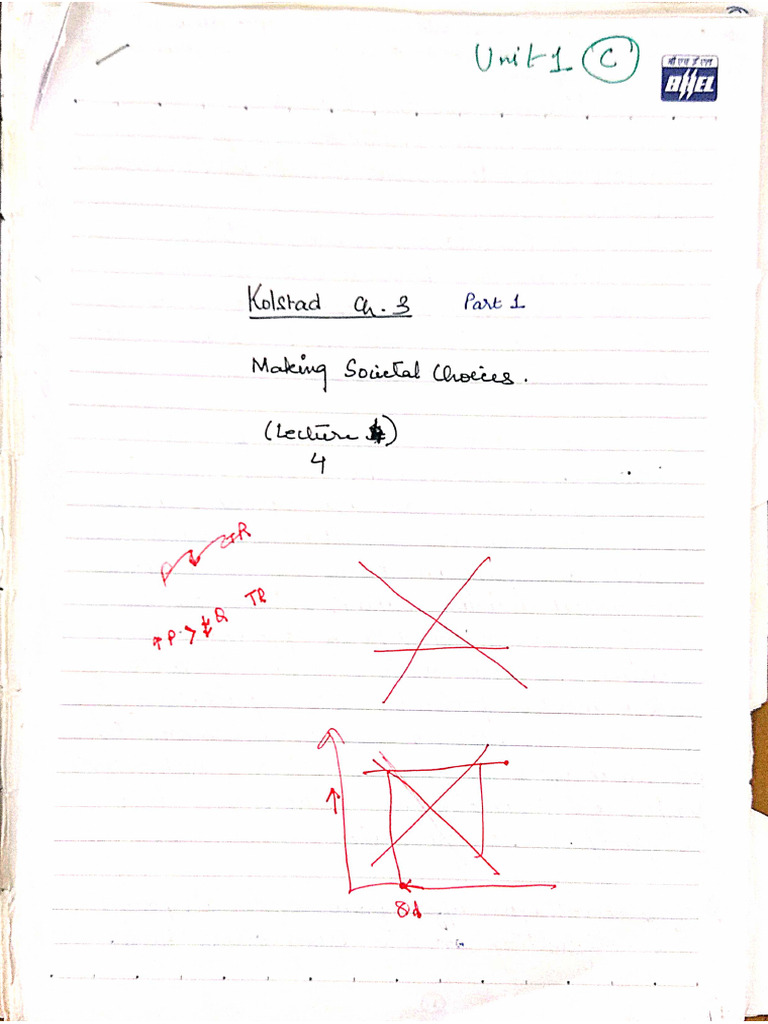 Unit 1 C
बी एच ई एल
BHEL
Kolstad Ch. 3 Part 1
Making Societal Choices.
(Lecture )
4
TR
↑P > ↓Q TR
↑
Qd